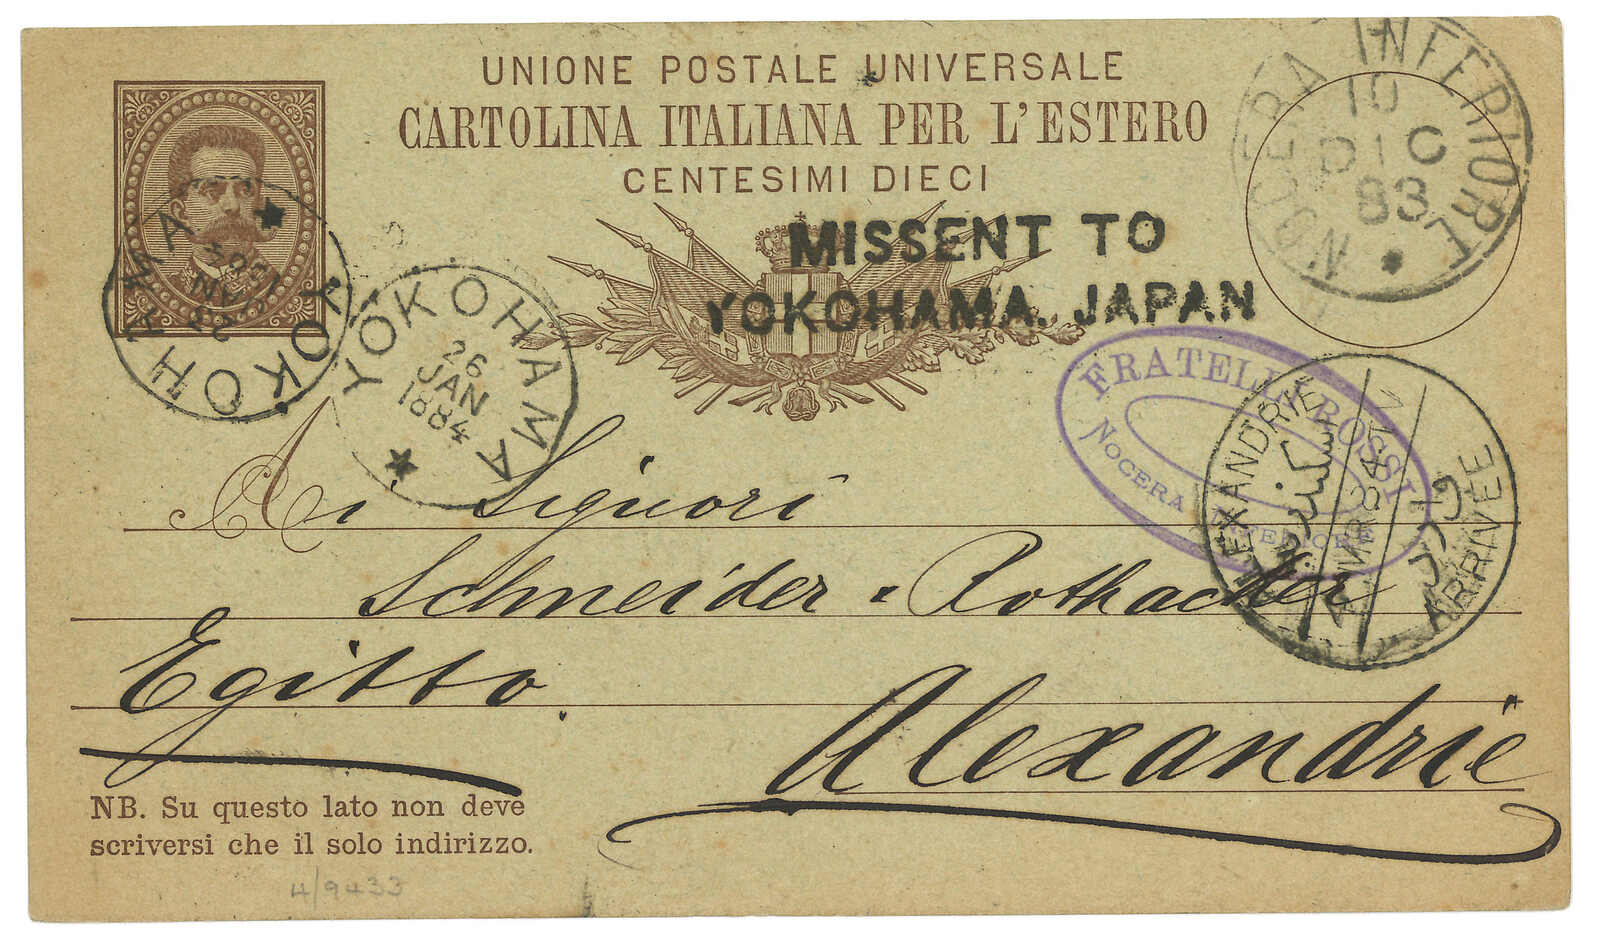 UNIONE POSTALE UNIVERSALE
CARTOLINA ITALIANA PER L'ESTERO
CENTESIMI DIECI
NOCERA INFERIORE
10
DIC
83
MISSENT TO
YOKOHAMA. JAPAN
YOKOHAMA
JAN
YOKOHAMA
26
JAN
1884
FRATELLI ROSSI
NOCERA INFERIORE
ALEXANDRIE
ARRIVEE
Ai Signori
Schneider & Rothacher
Egitto.
Alexandrie
NB. Su questo lato non deve
scriversi che il solo indirizzo.
4/9433